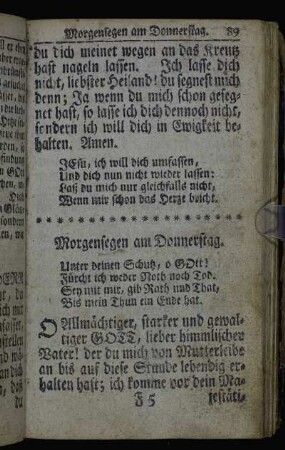 Morgensegen am Donnerstag. 89
du dich meinet wegen an das Kreuz
hast nageln lassen. Ich lasse dich
nicht, liebster Heiland! du segnest mich
denn; Ja wenn du mich schon geseg-
net hast, so lasse ich dich dennoch nicht,
sondern ich will dich in Ewigkeit be-
halten. Amen.
JEsu, ich will dich umfassen,
Und dich nun nicht wieder lassen:
Laß du mich nur gleichfalls nicht,
Wenn mir schon das Herze bricht.
Morgensegen am Donnerstag.
Unter deinen Schutz, o GOtt!
Fürcht ich weder Noth noch Tod.
Sey mit mir, gib Rath und That,
Bis mein Thun ein Ende hat.
O Allmächtiger, starker und gewal-
tiger GOTT, lieber himmlischer
Vater! der du mich von Mutterleibe
an bis auf diese Stunde lebendig er-
halten hast; ich komme vor dein Ma-
F 5 jestäti-